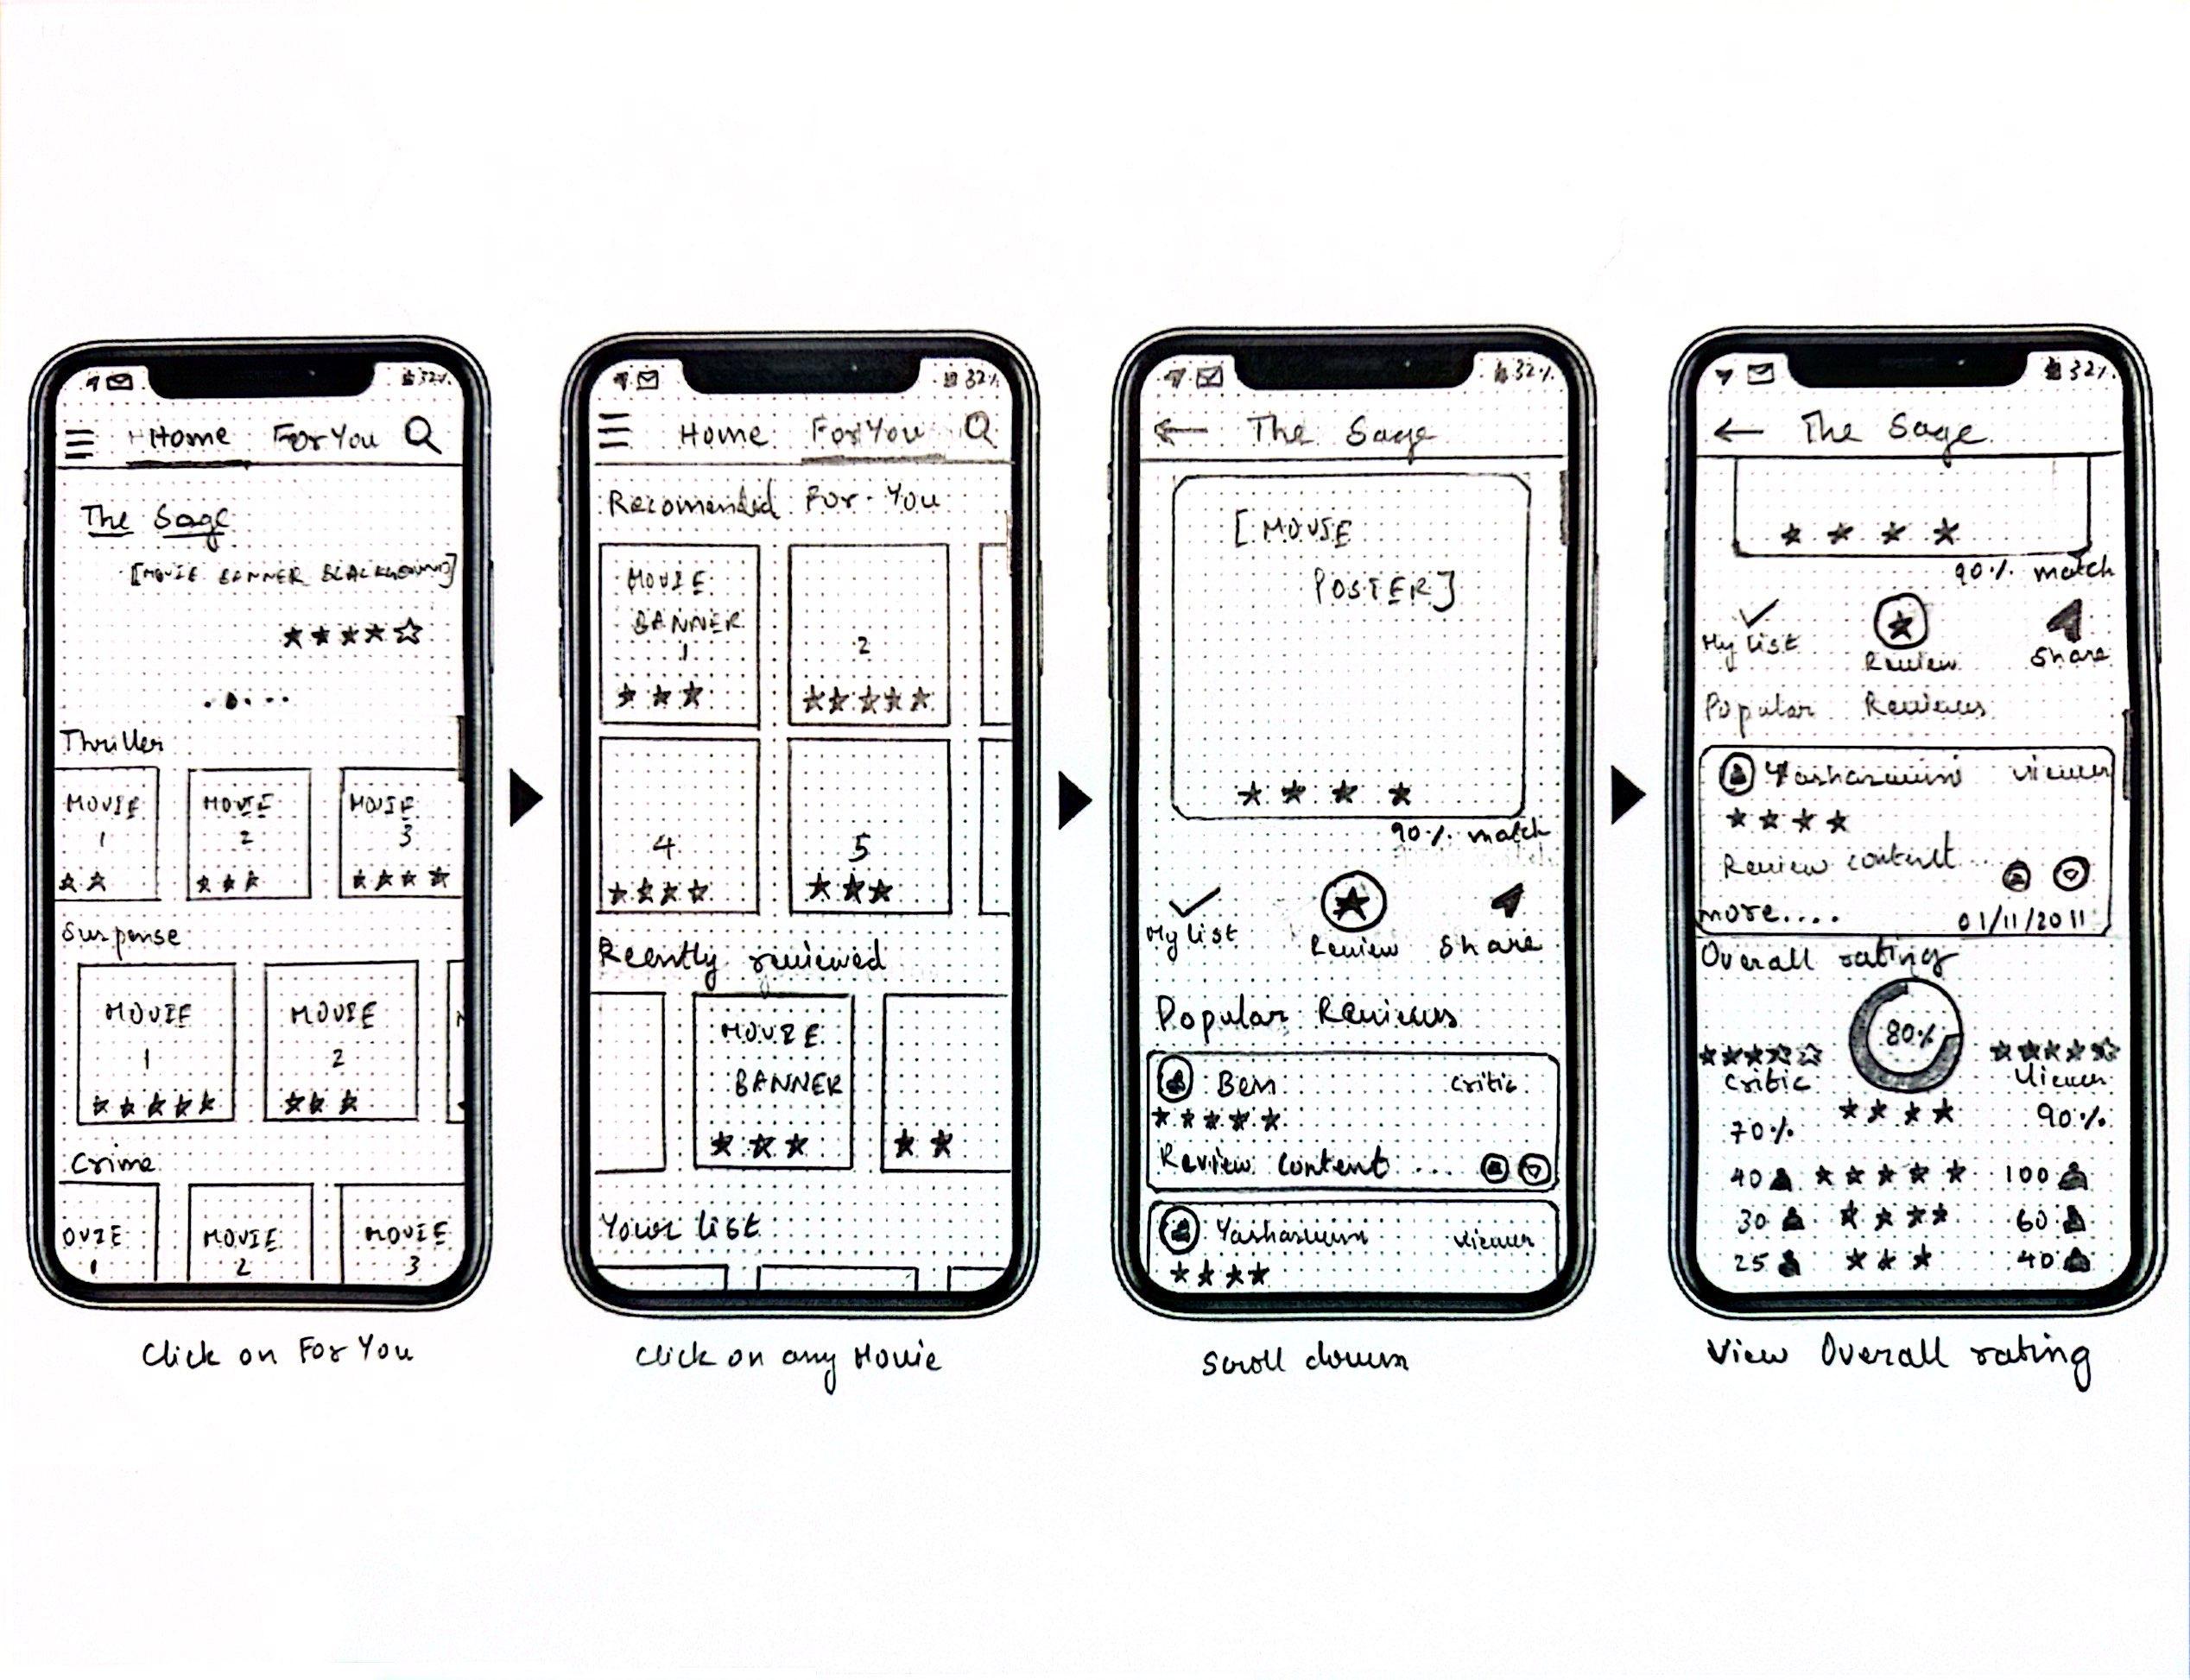 32%
Home For You
The Sage
[MOVIE BANNER BLACKGROUND]
Thriller
MOVIE 1
MOVIE 2
MOVIE 3
Suspense
MOVIE 1
MOVIE 2
Crime
OVIE 1
MOVIE 2
MOVIE 3
Click on For You
32%
Home For You
Recomended For You
MOVIE BANNER 1
2
4
5
Recently reviewed
MOVIE BANNER
Your list
Click on any Movie
32%
The Sage
[MOVIE
POSTER]
90% match
My list Review Share
Popular Reviews
Ben critic
Review content ...
viewer
Scroll down
32%
The Sage
90% match
My list Review Share
Popular Reviews
viewer
Review content ...
more....
01/11/2011
Overall rating
80%
critic Viewer
70% 90%
40 100
30 60
25 40
View Overall rating